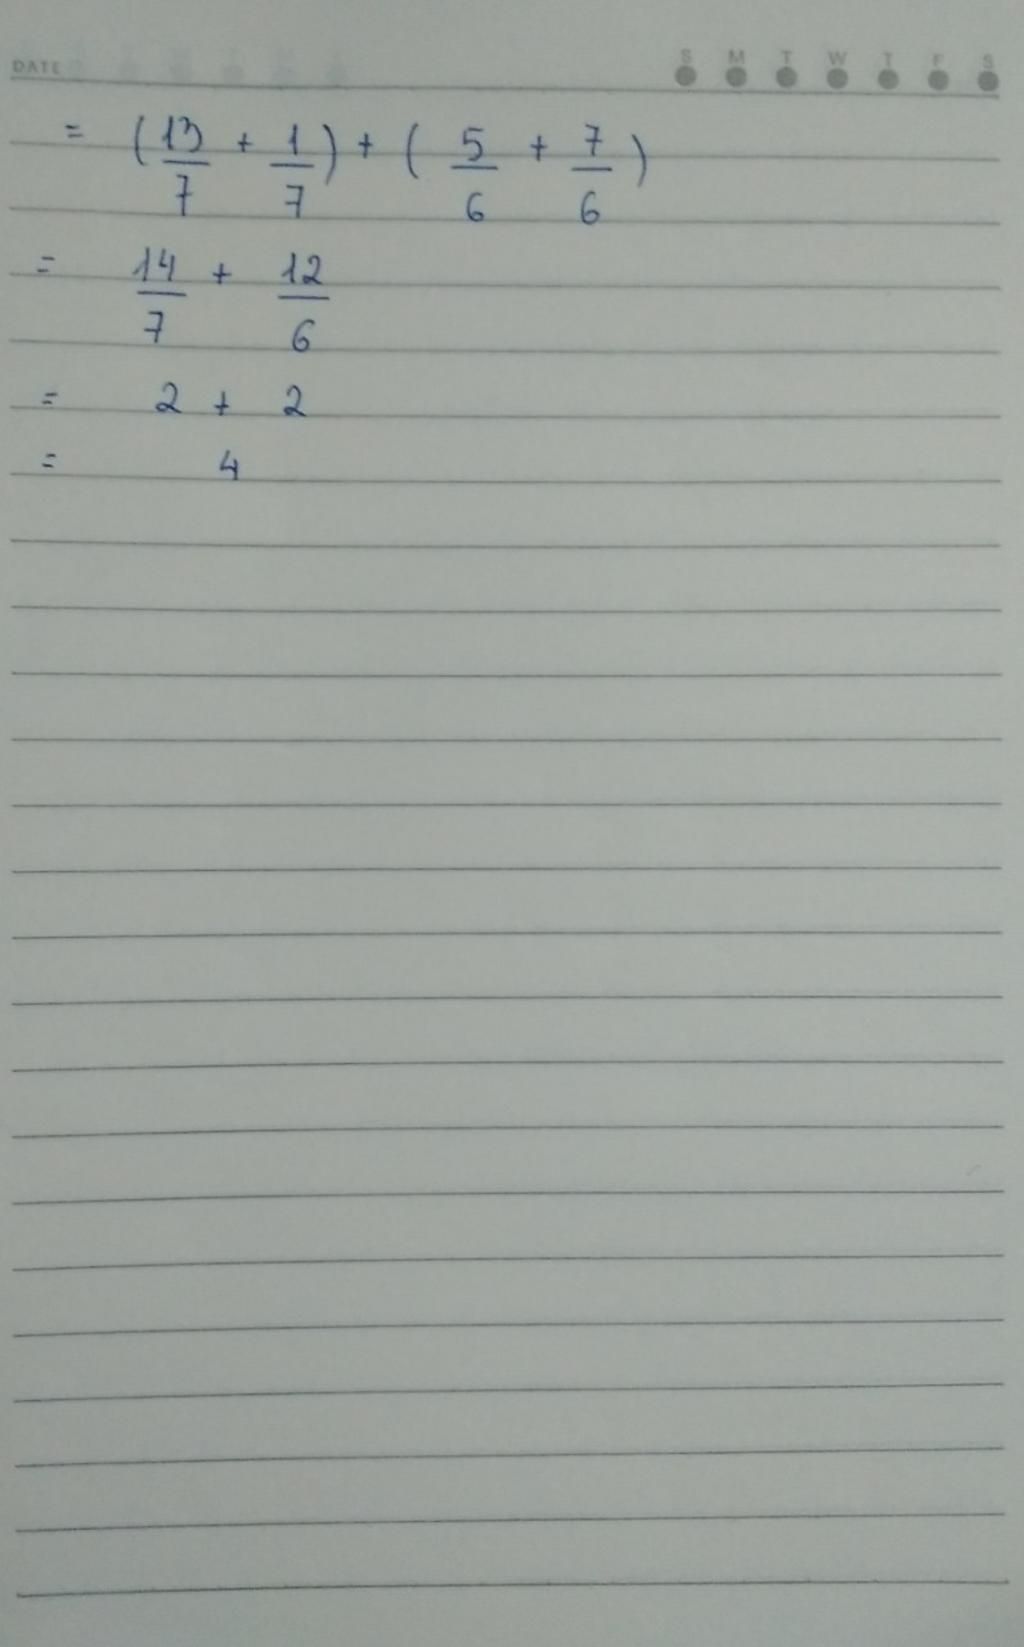 DATE S M T W T F S
= (13/7 + 1/7) + (5/6 + 7/6)
= 14/7 + 12/6
= 2 + 2
= 4